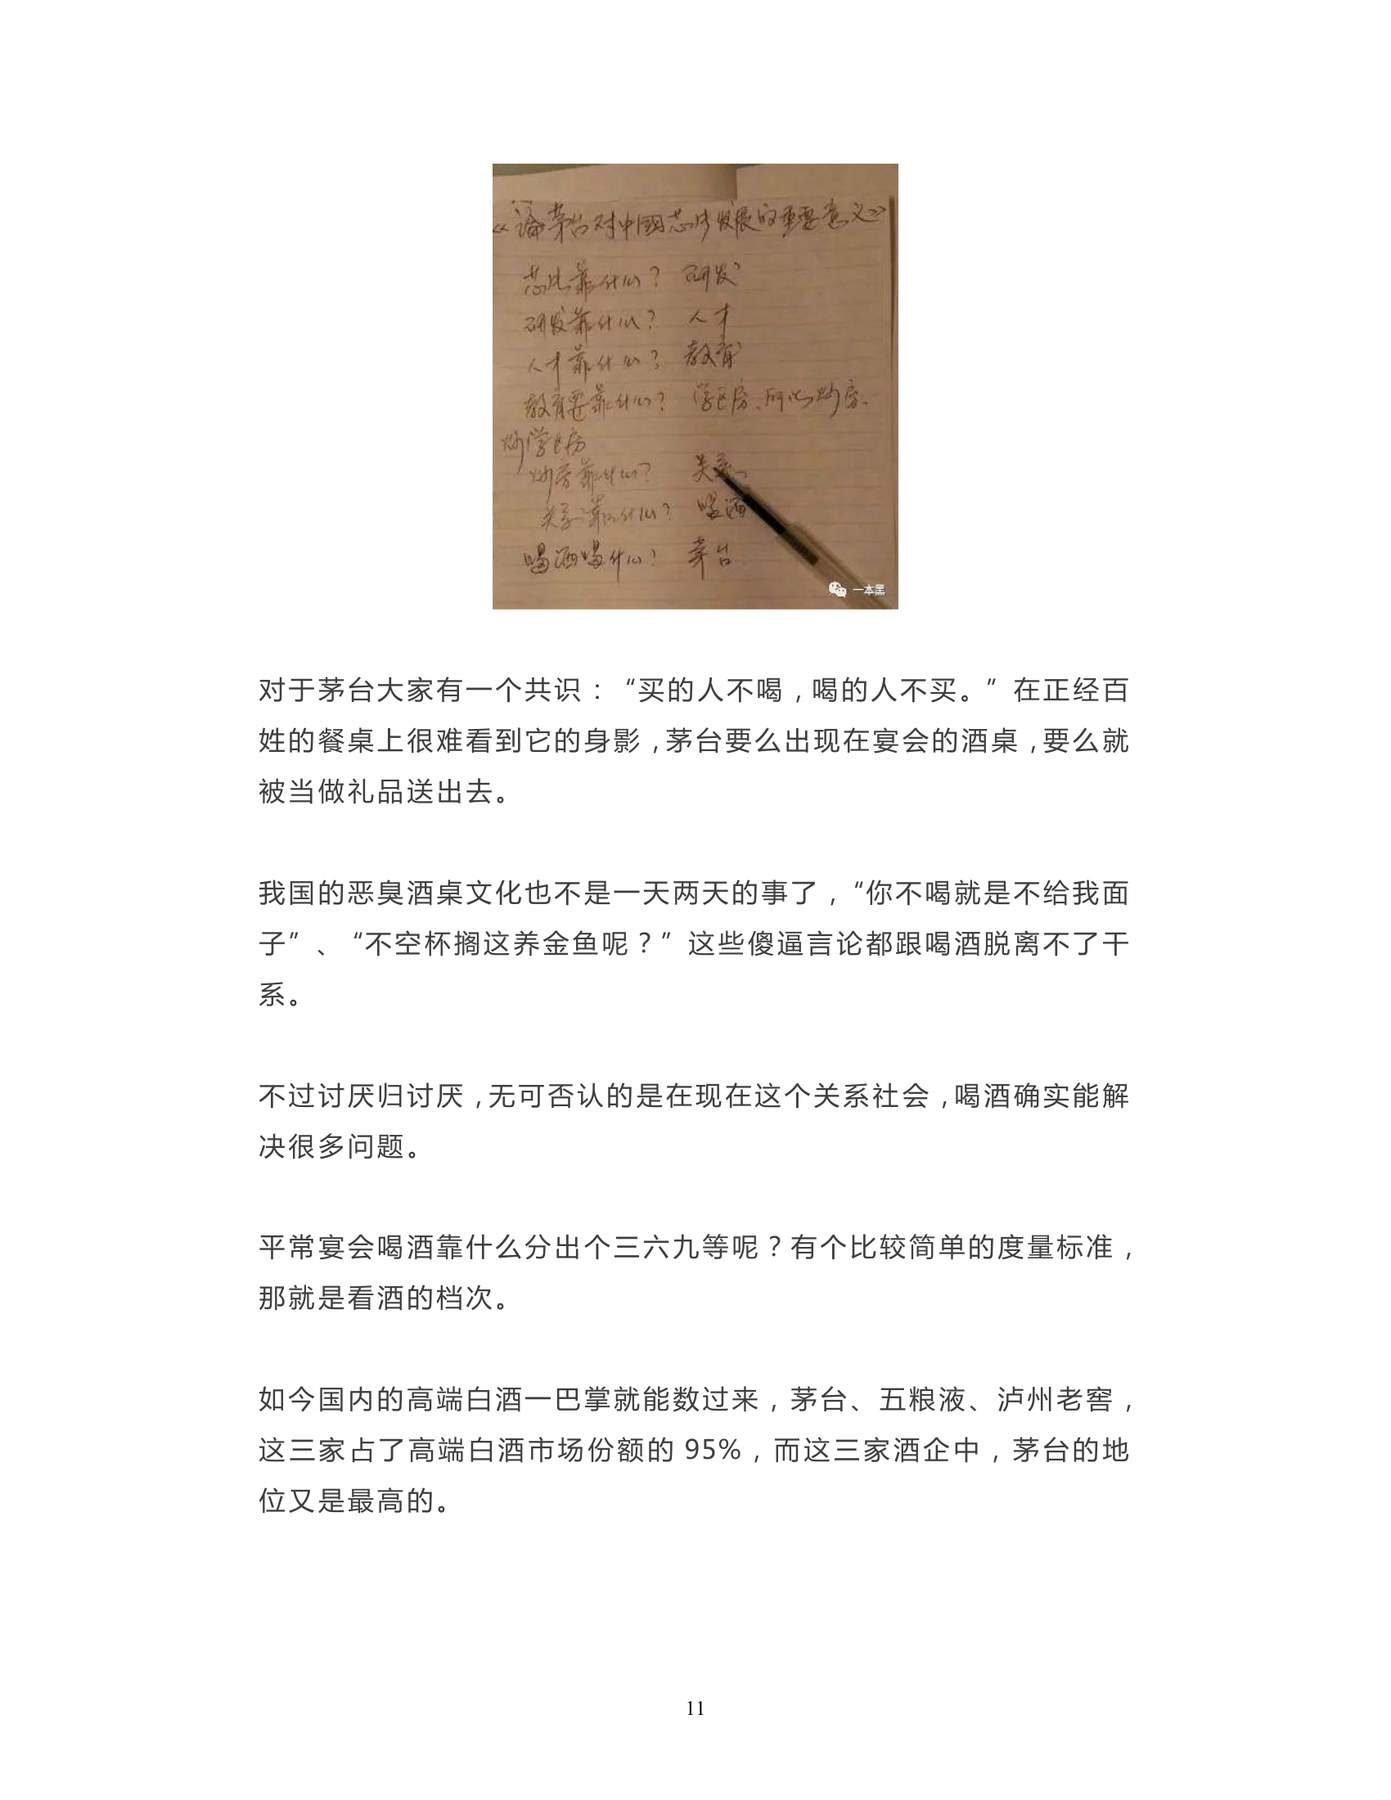 《论茅台对中國芯片发展的重要意义》
芯片靠什么? 研发
研发靠什么? 人才
人才靠什么? 教育
教育要靠什么? 学区房、所以炒房、
炒学区房
炒房靠什么? 关系
关系靠什么? 喝酒
喝酒喝什么? 茅台
一本黑
对于茅台大家有一个共识：“买的人不喝，喝的人不买。”在正经百
姓的餐桌上很难看到它的身影，茅台要么出现在宴会的酒桌，要么就
被当做礼品送出去。
我国的恶臭酒桌文化也不是一天两天的事了，“你不喝就是不给我面
子”、“不空杯搁这养金鱼呢？”这些傻逼言论都跟喝酒脱离不了干
系。
不过讨厌归讨厌，无可否认的是在现在这个关系社会，喝酒确实能解
决很多问题。
平常宴会喝酒靠什么分出个三六九等呢？有个比较简单的度量标准，
那就是看酒的档次。
如今国内的高端白酒一巴掌就能数过来，茅台、五粮液、泸州老窖，
这三家占了高端白酒市场份额的 95%，而这三家酒企中，茅台的地
位又是最高的。
11